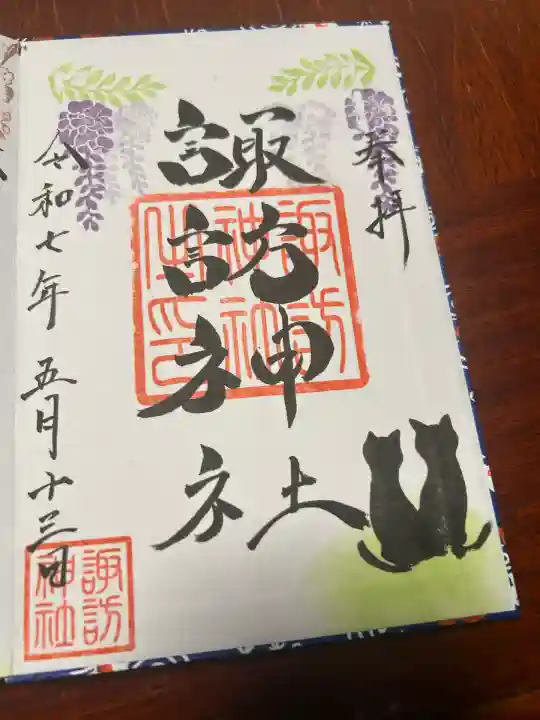 奉拝
諏訪神社
諏訪神社之印
令和七年 五月十三日
諏訪神社